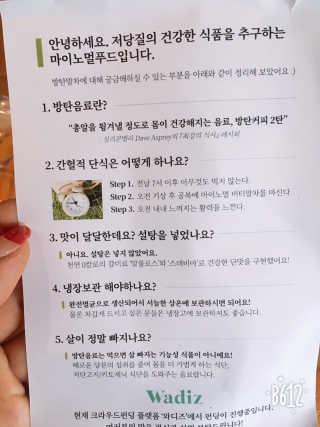 안녕하세요. 저당질의 건강한 식품을 추구하는
마이노멀푸드입니다.
방탄말차에 대해 궁금해하실 수 있는 부분을 아래와 같이 정리해 보았어요 :)
1. 방탄음료란?
"총알을 튕겨낼 정도로 몸이 건강해지는 음료, 방탄커피 2탄"
실리콘밸리 Dave Asprey의 「최강의 식사」 레시피
2. 간헐적 단식은 어떻게 하나요?
Step 1. 전날 7시 이후 아무것도 먹지 않는다.
Step 2. 오전 기상 후 공복에 마이노멀 버터말차를 마신다.
Step 3. 오전 내내 느껴지는 활력을 느낀다.
3. 맛이 달달한데요? 설탕을 넣었나요?
아니요, 설탕은 넣지 않았어요.
천연 0칼로리 감미료 '알룰로스'와 '스테비아'로 건강한 단맛을 구현했어요!
4. 냉장보관 해야하나요?
완전멸균으로 생산되어서 서늘한 상온에 보관하시면 되어요!
물론 차갑게 드시고 싶은 분들은 냉장고에 보관하셔도 좋습니다.
5. 살이 정말 빠지나요?
방탄음료는 먹으면 살 빠지는 기능성 식품이 아니에요!
해로운 당분의 섭취를 줄여 몸을 더 가볍게 하는 식단,
저탄고지/키토제닉 식단을 도와주는 음료랍니다.
Wadiz
현재 크라우드펀딩 플랫폼 '와디즈'에서 펀딩이 진행중입니다.
B612